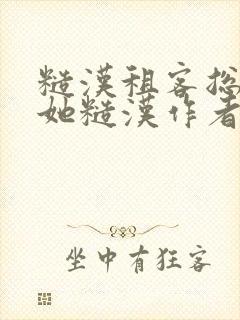 糙漢租客總
她糙漢作者
坐中有狂客